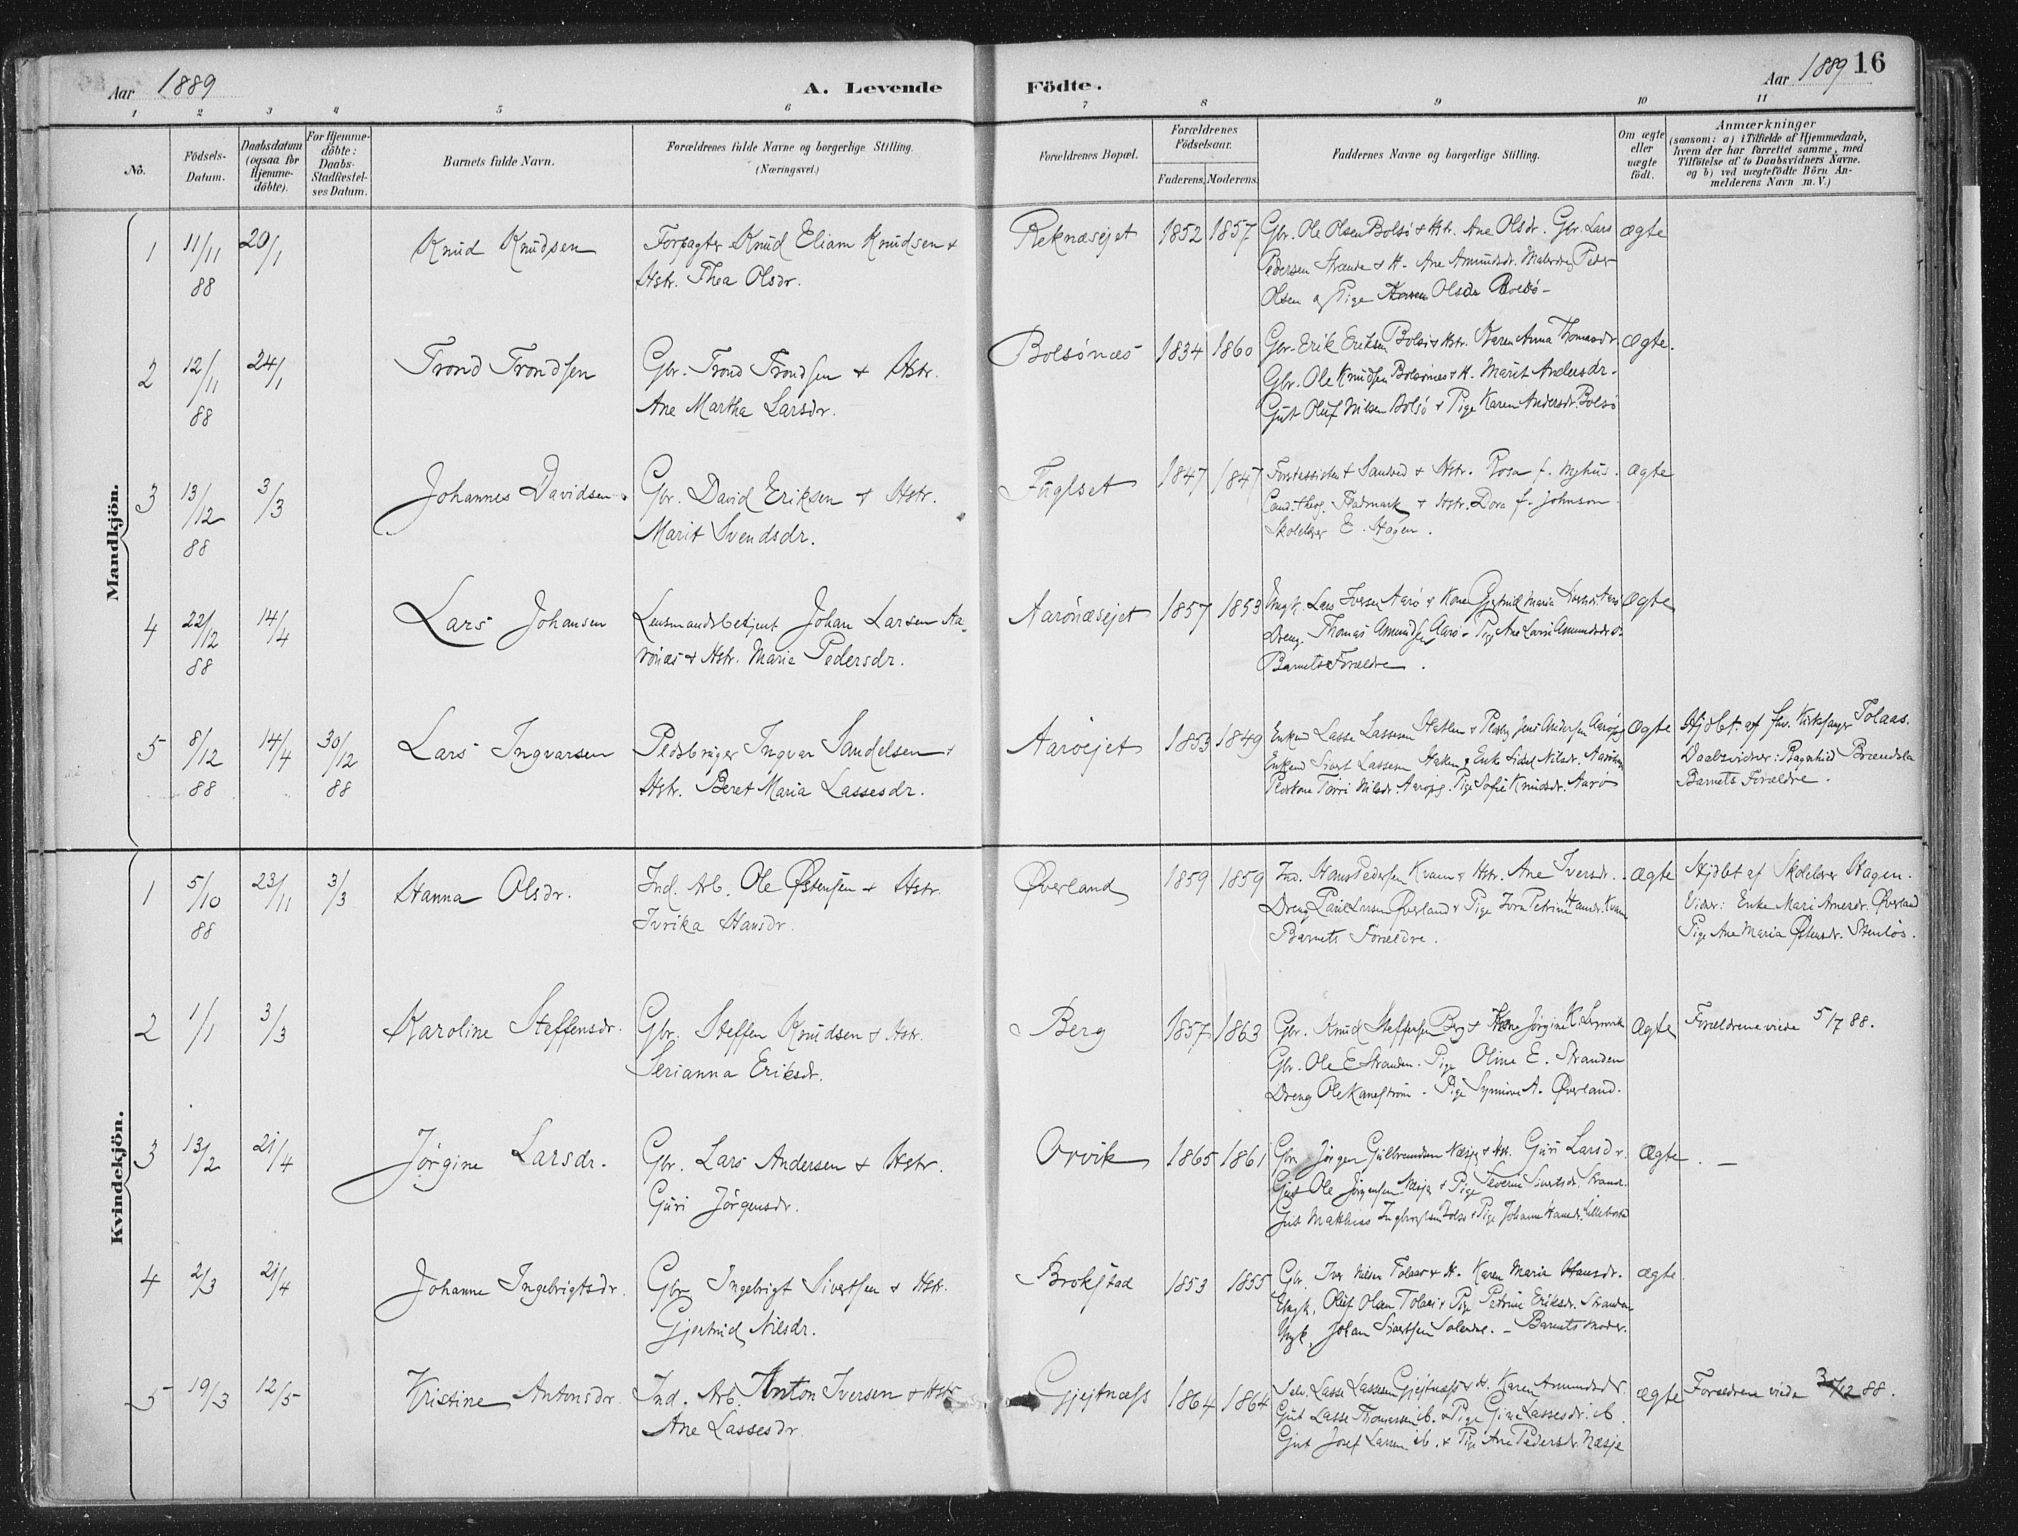 Aar 1889
A. Levende Födte.
Aar 1889 16
1 2 3 4 5 6 7 8 9 10 11
No.
Födsels-Datum.
Daabsdatum (ogsaa for Hjemmedöbte).
For Hjemmedöbte: Daabs-Stadfæstelses Datum.
Barnets fulde Navn.
Forældrenes fulde Navne og borgerlige Stilling. (Næringsvei.)
Forældrenes Bopæl.
Forældrenes Födselsaar.
Faderens. Moderens.
Faddernes Navne og borgerlige Stilling.
Om ægte eller uægte födt.
Anmærkninger
(saasom: a) i Tilfælde af Hjemmedaab, hvem der har forrettet samme, med Tilföielse af to Daabsvidners Navne. og b) ved uægtefödte Börn Anmelderens Navn m. V.)
Mandkjön.
1 11/11 88 20/1 Knud Knudsen
Forpagter Knud Eliam Knudsen +
Hstr. Thea Olsdr.
Reknæsejet 1852 1857
Gbr. Ole Olsen Bolsö + Hstr. Ane Olsdr. Gbr. Lars
Pedersen Strande + H. Ane Amundsdr. Peder
Olsen og Pige Karen Olsdr Bolsö
ægte
2 12/11 88 24/1 Trond Trondsen
Gbr. Trond Trondsen + Hstr.
Ane Martha Larsdr.
Bolsönæs 1834 1860
Gbr. Erik Eriksen Bolsö + Hstr. Karen Anna Thomasdr
Gbr. Ole Knudsen Bolsönæs + H. Marit Andersdr.
Gut Oluf Nilsen Bolsö + Pige Karen Andersdr. Bolsö
ægte.
3 13/12 88 3/3 Johannes Davidsen
Gbr. David Eriksen + Hstr.
Marit Svendsdr.
Fuglset 1847 1847
Forstassistent Sandved + Hstr. Rosa f. Myhus.
Cand. theol. + Hstr. Dora f. Johnson
Skolelærer E. Hagen.
ægte
4 22/12 88 14/4 Lars Johansen
Lensmandsbetjent Johan Larsen Aa-
rönæs + Hstr. Maria Pedersdr.
Aarönæsejet 1857 1853
Ungk. Lars Iversen Aarö + Kone Gjertrud Maria
Dreng Thomas Amundsen Aarö - Pige Ane
Barnets Forældre.
ægte
5 8/12 88 14/4 30/12 88 Lars Ingvarsen
Pladsbruger Ingvar Sandelsen +
Hstr. Beret Maria Lassesdr.
Aaröejet 1853 1849
Enkem Lasse Lassesen Jens Andersen
Enkem Sivert Lassesen + Enke Sidsel Nilsdr.
Nilsdr. Pige Sofie Knudsdr. Aarö
ægte
Hjdöbt. af Kirkesanger Tolaas.
Daabsvidner: Ragnhild
Barnets Forældre.
Kvindekjön.
1 5/10 88 23/11 3/3 Hanna Olsdr.
Ind. Arb. Ole Østensen + Hstr
Ivrika Hansdr.
Øverland 1859 1859
Ind. Hans Pedersen Kvam + Hstr. Ane Iversdr.
Dreng Øverland + Pige Petrine Hansdr. Kvam
Barnets Forældre.
ægte
Hjdöbt af Skolelærer Hagen.
Vidner: Enke Mari Arnesdr. Øverland
Pige Ane Maria Østensdr. Stenlös.
2 1/1 3/3 Karoline Steffensdr.
Gbr. Steffen Knudsen + Hstr.
Serianna Eriksdr.
Berg 1857 1863
Gbr. Knud Steffensen Berg + Kone Jørgine K.
Gbr. Ole E Stranden. Pige Oline E. Stranden
Dreng Ole - Pige Synnöve A. Øverland.
ægte
Forældrene viede 5/7 88.
3 13/2 21/4 Jørgine Larsdr.
Gbr. Lars Andersen + Hstr.
Guri Jørgensdr.
Orvik 1865 1861
Gbr Jörgen Gulbrandsen Næsje + Hst. Guri Larsdr.
Gut Ole Jörgensen Næsje + Pige Severine Sivertsdr. Strand.
Gut Mathias + Pige Johanne Hansdr.
Ægte. —
4 2/3 21/4 Johanne Ingebrigtsdr.
Gbr Ingebrigt Sivertsen + Hstr.
Gjertrud Nilsdr.
Brokstad 1853 1855
Gbr. Iver Nilsen Tolaas + H. Karen Marie Hansdr.
Ungk. Oluf Olsen Tolaas + Pige Petrine Eriksdr. Stranden
Ungk. Johan Sivertsen - Barnets Moder.
ægte
5 19/3 12/5 Kristine Antonsdr.
Ind. Arb. Anton Iversen + Hstr
Ane Lassesdr.
Gjejtnæss 1864 1864
Selv. Lasse Lassesen Gjejtnæss + H. Karen Amundsdr.
Gut Lasse Thomassen ib. + Pige Gine Lassesdr. ib.
Gut Josef Larsen ib. + Pige Ane Pedersdr. Næsje
ægte
Forældrene viede 88.